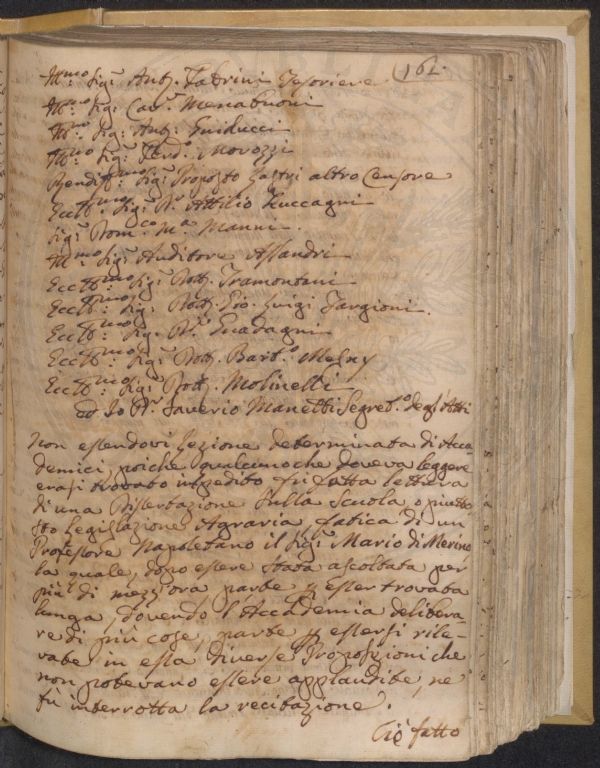 162.
Ill.mo Sig.r Ant.o Fabrini Tesoriere
Ill.mo Sig: Cav.r Menabuoni
Ill.mo Sig: Ant.o Guiducci
Ill.mo Sig.r Ferd.o Morozzi
Rendiss.mo Sig.r Proposto Lastri altro Censore
Ecc.mo Sig.r D.r Attilio Zuccagni
Sig.r Dom.co M.a Manni.
Ill.mo Sig.r Auditore Assandri
Eccll.mo Sig.r Dott. Tramontani
Eccll.mo Sig.r Dott. Gio. Luigi Targioni.
Eccll.mo Sig. D.r Guadagni
Eccll.mo Sig.r Dott. Bart.o Mesny
Eccll.mo Sig.r Dott. Molinelli
ed Io D.r Saverio Manetti Segret.o degl'Atti
Non essendovi Lezione determinata di Acca-
demici, poiche qualcuno che doveva leggere
erasi trovato impedito fù fatta lettura
di una Dissertazione sulla Scuola, o piutto
sto Legislazione Agraria fatica di un
Professore Napoletano il Sig.r Mario di Merino
la quale, dopo essere stata ascoltata per
più di mezz'ora parte p esser trovata
lunga, dovendo l'Accademia delibera-
re di più cose, parte p essersi rile-
vate in essa diverse Proposizioni che
non potevano essere applaudite, ne
fù interrotta la recitazione.
Ciò fatto